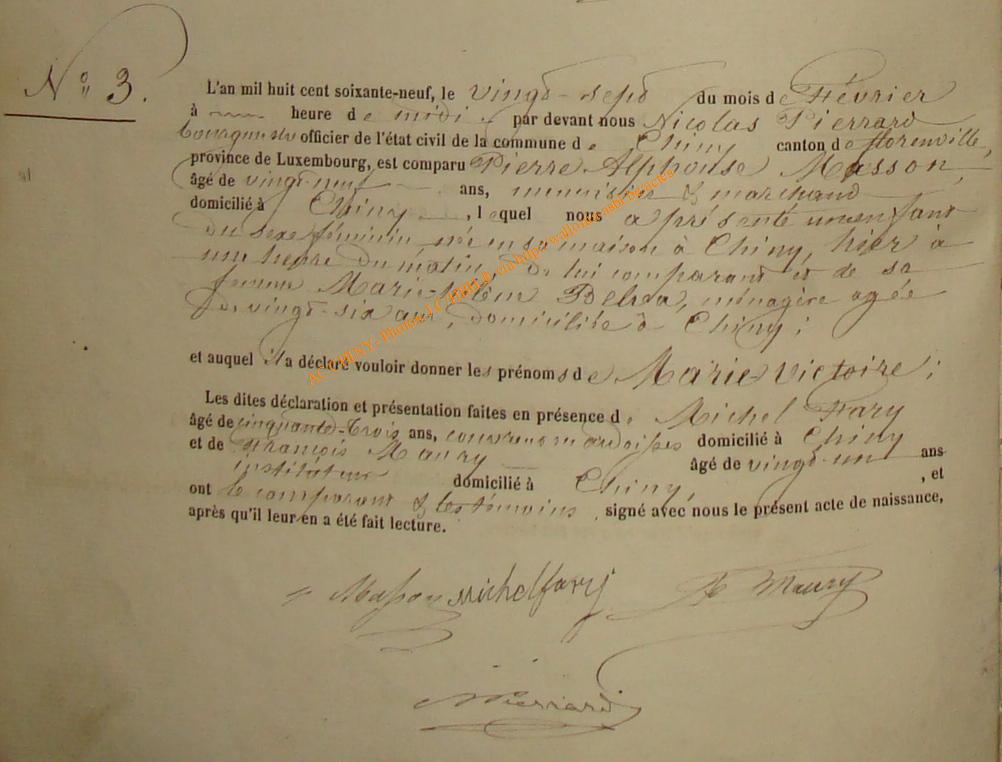 N° 3.
L'an mil huit cent soixante-neuf, le vingt-sept du mois de Février
à heure de midi par devant nous Nicolas Pierrard
bourgmestre officier de l'état civil de la commune de Chiny canton de florenville,
province de Luxembourg, est comparu Pierre Alphonse Masson,
âgé de vingt neuf ans, menuisier & marchand
domicilié à Chiny, lequel nous a présenté un enfant
du sexe féminin née en sa maison à Chiny, hier à
une heure du matin, de lui comparant et de sa
femme Marie ménagère agée
de vingt-six ans, domiciliée à Chiny;
et auquel il a déclaré vouloir donner les prénoms de Marie Victoire;
Les dites déclaration et présentation faites en présence de Michel Fary
âgé de cinquante-trois ans, couvreur en ardoises domicilié à Chiny
et de François Maury âgé de vingt-un ans
instituteur domicilié à Chiny, , et
ont le comparant & les témoins signé avec nous le présent acte de naissance,
après qu'il leur en a été fait lecture.
Masson Michel fary Maury
Pierrard